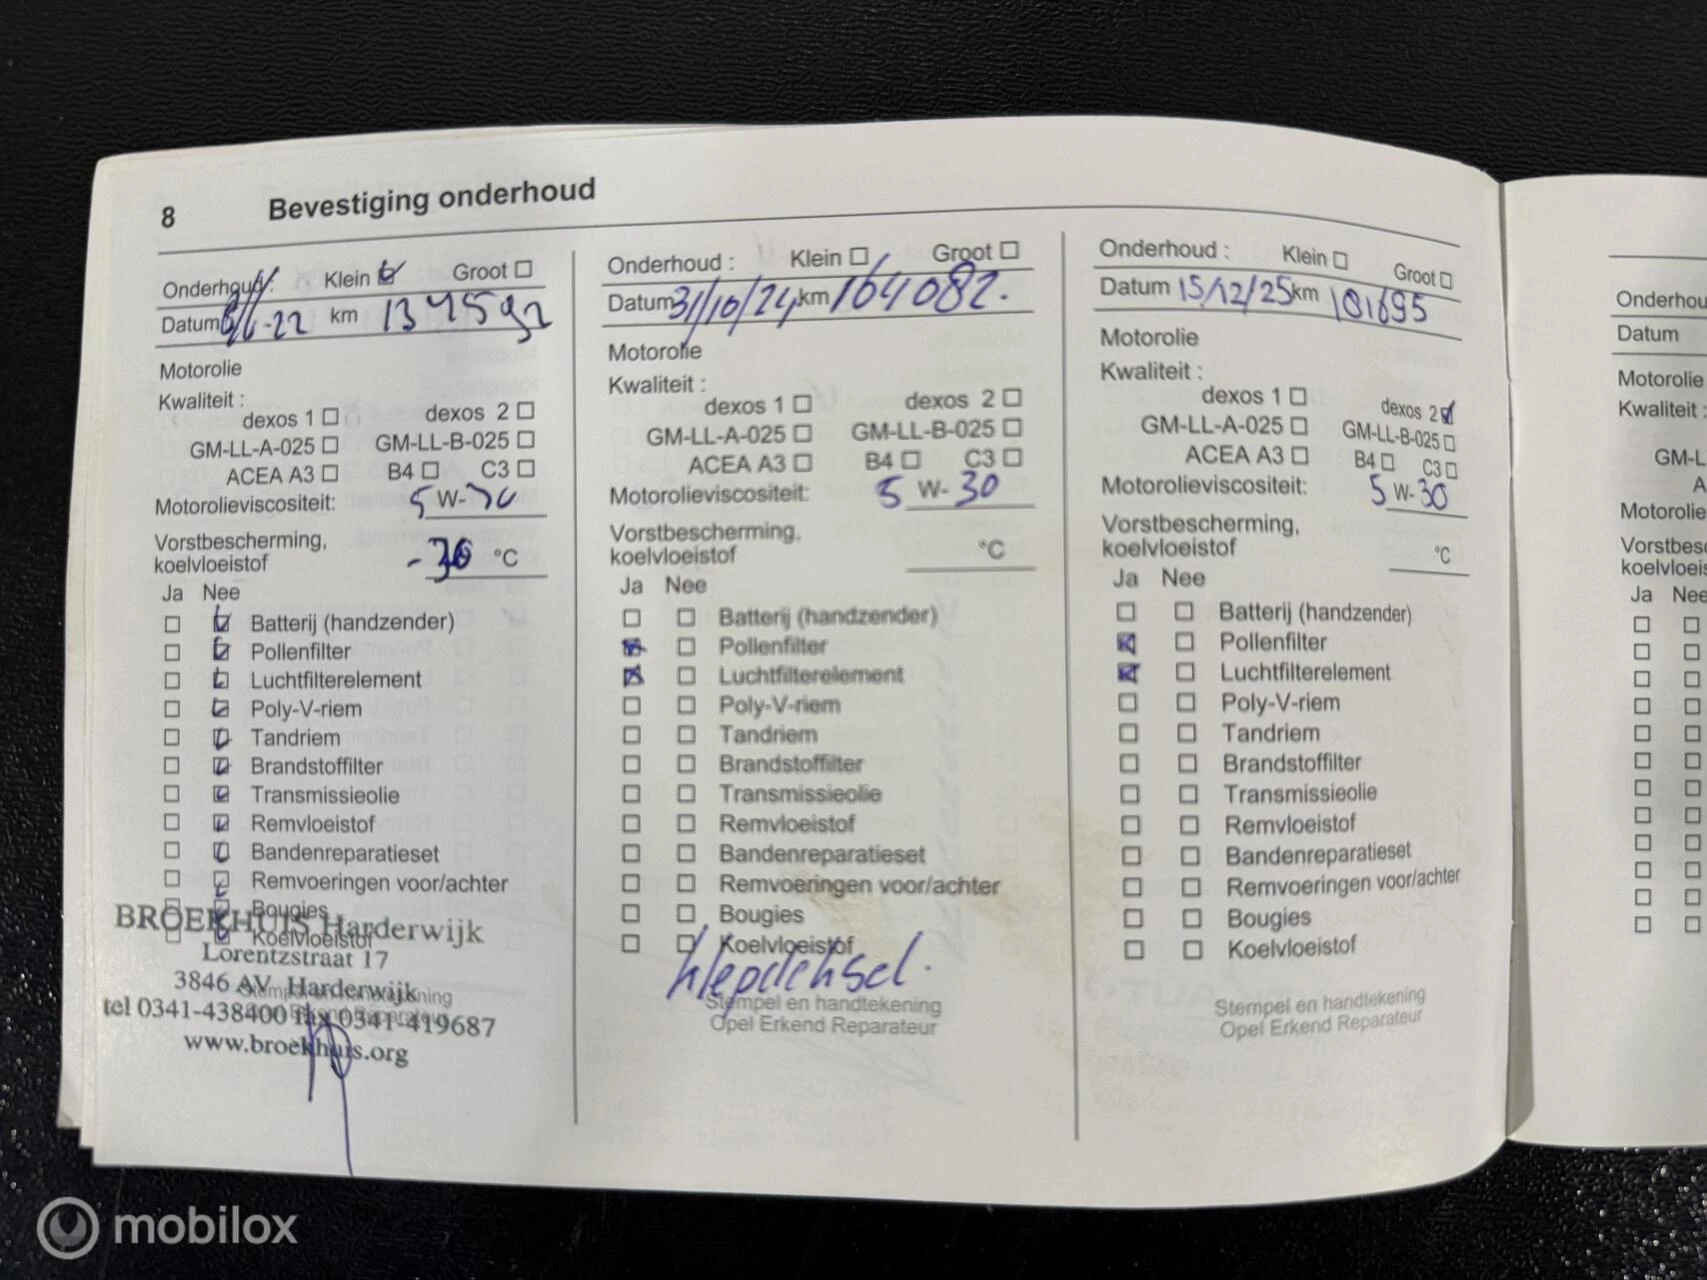 8 Bevestiging onderhoud
Onderhoud : Klein Groot
Datum km
Motorolie
Kwaliteit :
dexos 1 dexos 2
GM-LL-A-025 GM-LL-B-025
ACEA A3 B4 C3
Motorolieviscositeit: 5 W-30
Vorstbescherming,
koelvloeistof -30 °C
Ja Nee
Batterij (handzender)
Pollenfilter
Luchtfilterelement
Poly-V-riem
Tandriem
Brandstoffilter
Transmissieolie
Remvloeistof
Bandenreparatieset
Remvoeringen voor/achter
Bougies
Koelvloeistof
BROEKHUIS Harderwijk
Lorentzstraat 17
3846 AV Harderwijk
tel 0341-438400 fax 0341-419687
www.broekhuis.org
Onderhoud : Klein Groot
Datum 31/10/24 km 164082.
Motorolie
Kwaliteit :
dexos 1 dexos 2
GM-LL-A-025 GM-LL-B-025
ACEA A3 B4 C3
Motorolieviscositeit: 5 W-30
Vorstbescherming,
koelvloeistof °C
Ja Nee
Batterij (handzender)
Pollenfilter
Luchtfilterelement
Poly-V-riem
Tandriem
Brandstoffilter
Transmissieolie
Remvloeistof
Bandenreparatieset
Remvoeringen voor/achter
Bougies
Koelvloeistof
Stempel en handtekening
Opel Erkend Reparateur
Onderhoud : Klein Groot
Datum 15/12/25 km 181695
Motorolie
Kwaliteit :
dexos 1 dexos 2
GM-LL-A-025 GM-LL-B-025
ACEA A3 B4 C3
Motorolieviscositeit: 5 W-30
Vorstbescherming,
koelvloeistof °C
Ja Nee
Batterij (handzender)
Pollenfilter
Luchtfilterelement
Poly-V-riem
Tandriem
Brandstoffilter
Transmissieolie
Remvloeistof
Bandenreparatieset
Remvoeringen voor/achter
Bougies
Koelvloeistof
Stempel en handtekening
Opel Erkend Reparateur
Onderhou
Datum
Motorolie
Kwaliteit :
GM-L
A
Motorolie
Vorstbesc
koelvloeis
Ja Nee
mobilox